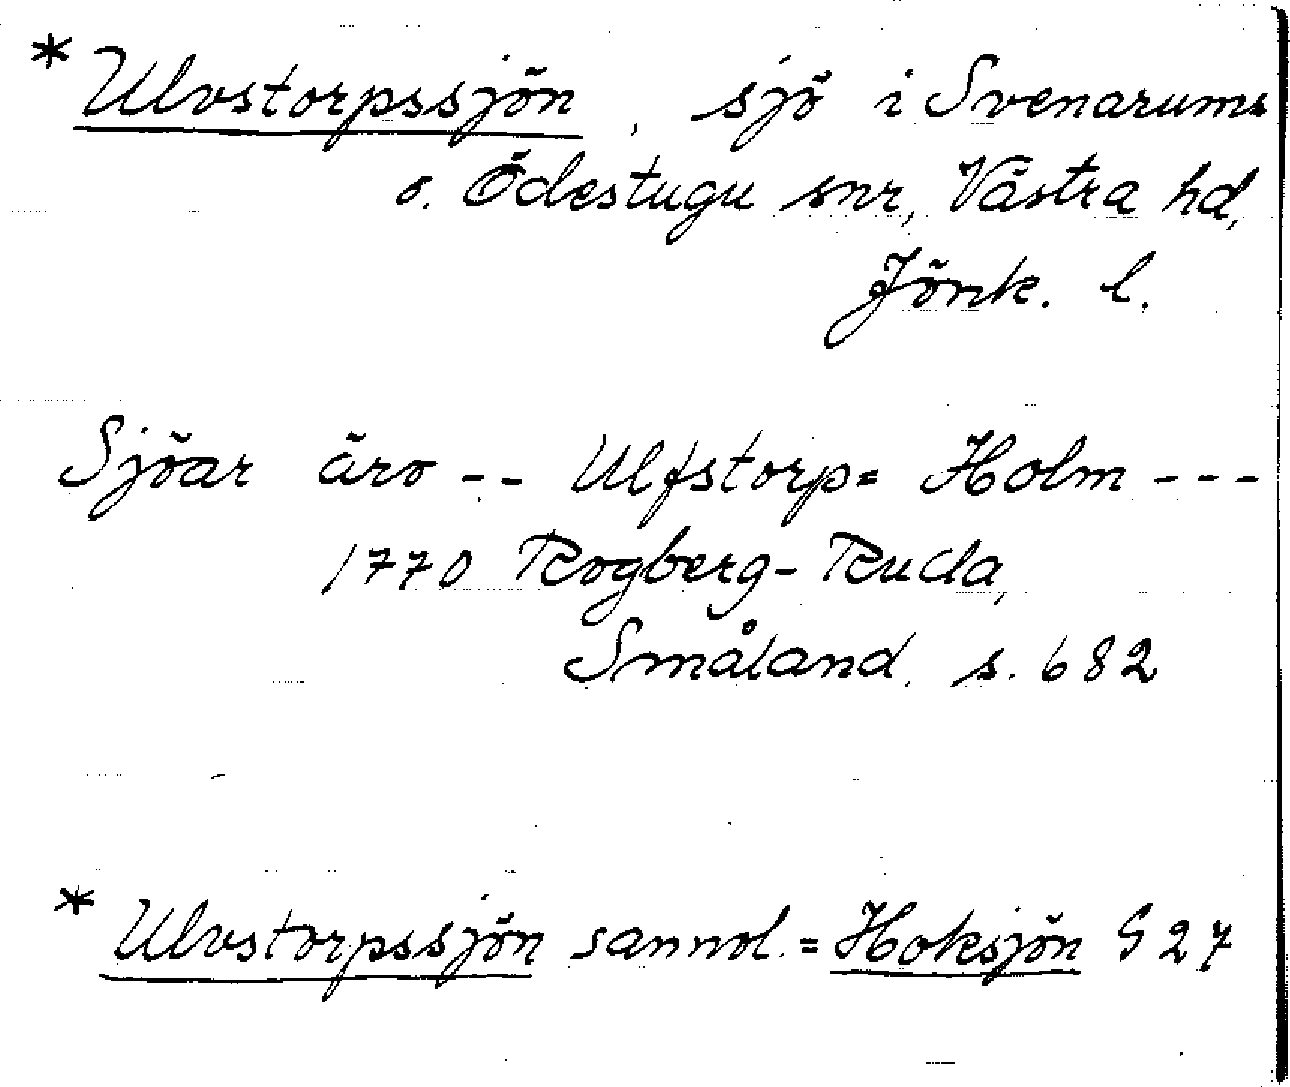 * Ulvstorpssjön, sjö i Svenarums
o. Ödestugu snr, Västra hd,
Jönk. l.
Sjöar äro -- Ulfstorp= Holm ---
1770 Rogberg-Ruda,
Småland, s. 682
* Ulvstorpssjön sannol. = Hoksjön S 27